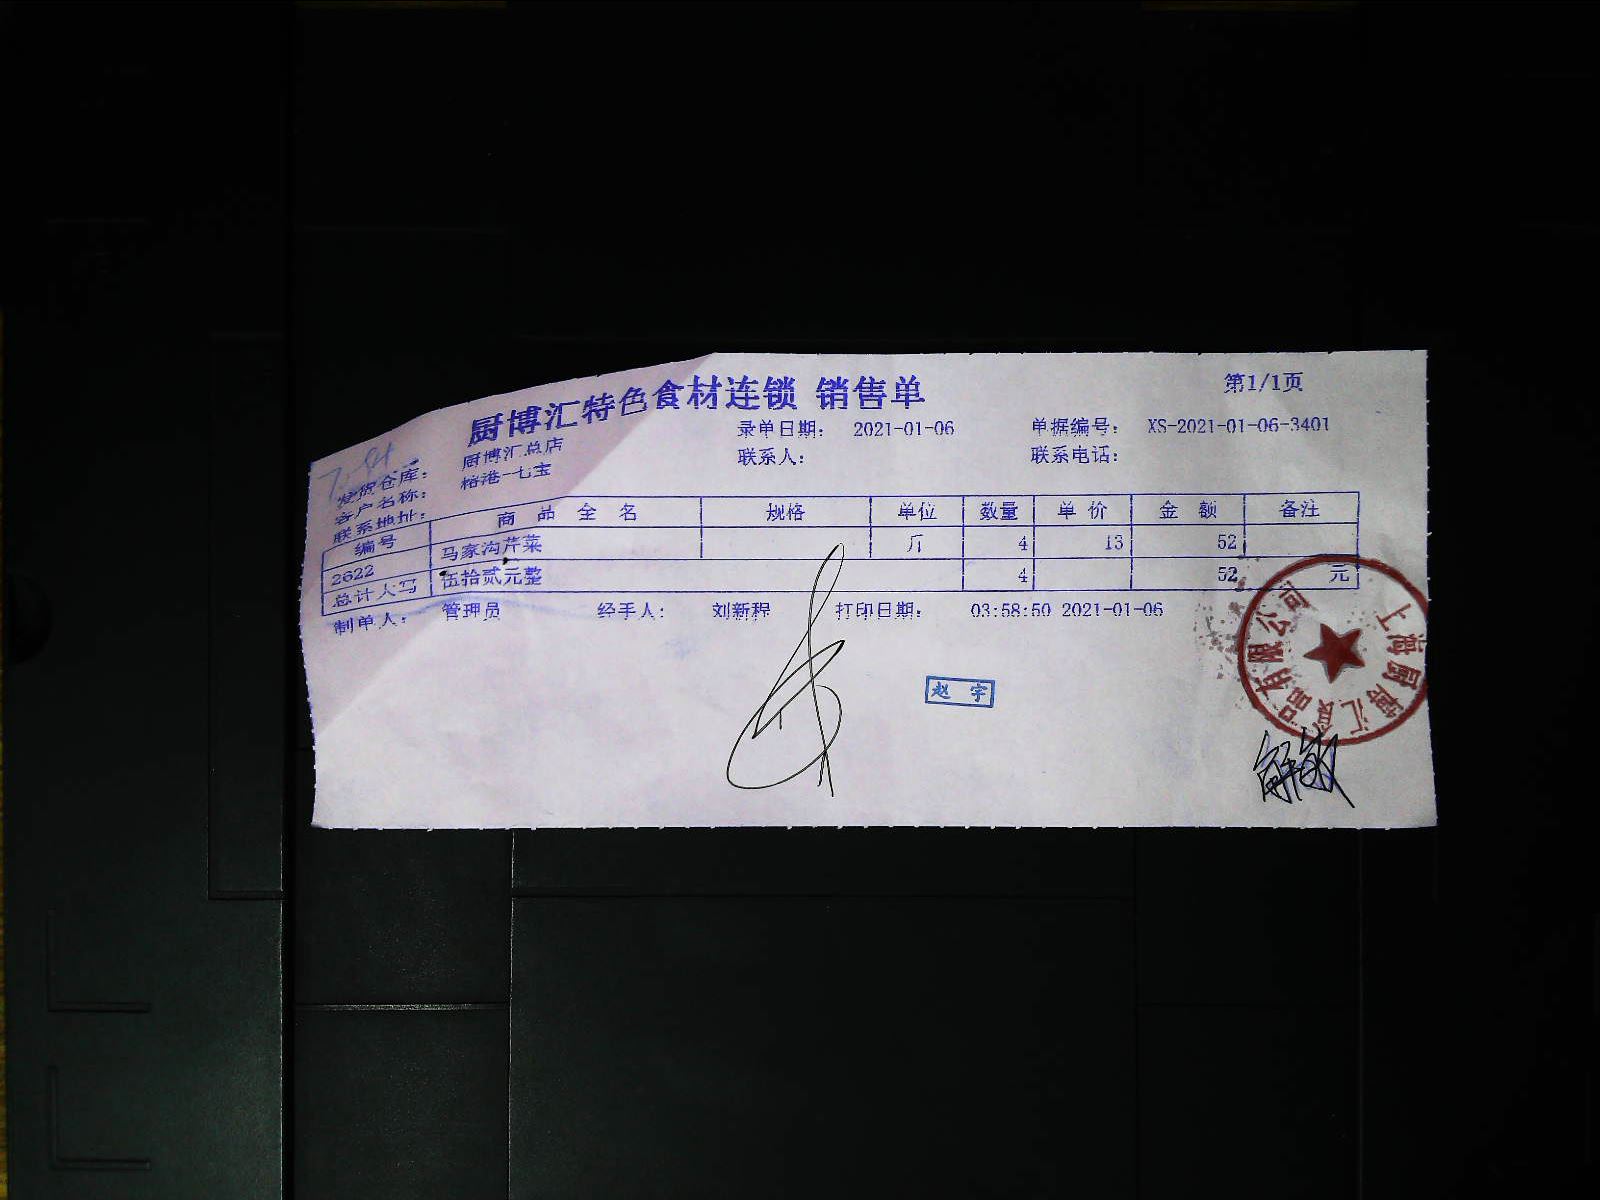 厨博汇特色食材连锁 销售单
第1/1页
发货仓库： 厨博汇总店 录单日期： 2021-01-06 单据编号： XS-2021-01-06-3401
客户名称： 榕港-七宝 联系人： 联系电话：
联系地址：
编号 商品全名 规格 单位 数量 单价 金额 备注
2622 马家沟芹菜 斤 4 13 52
总计大写 伍拾贰元整 4 52 元
制单人： 管理员 经手人： 刘新程 打印日期： 03:58:50 2021-01-06
赵宇
上海厨博汇食品有限公司
解敏